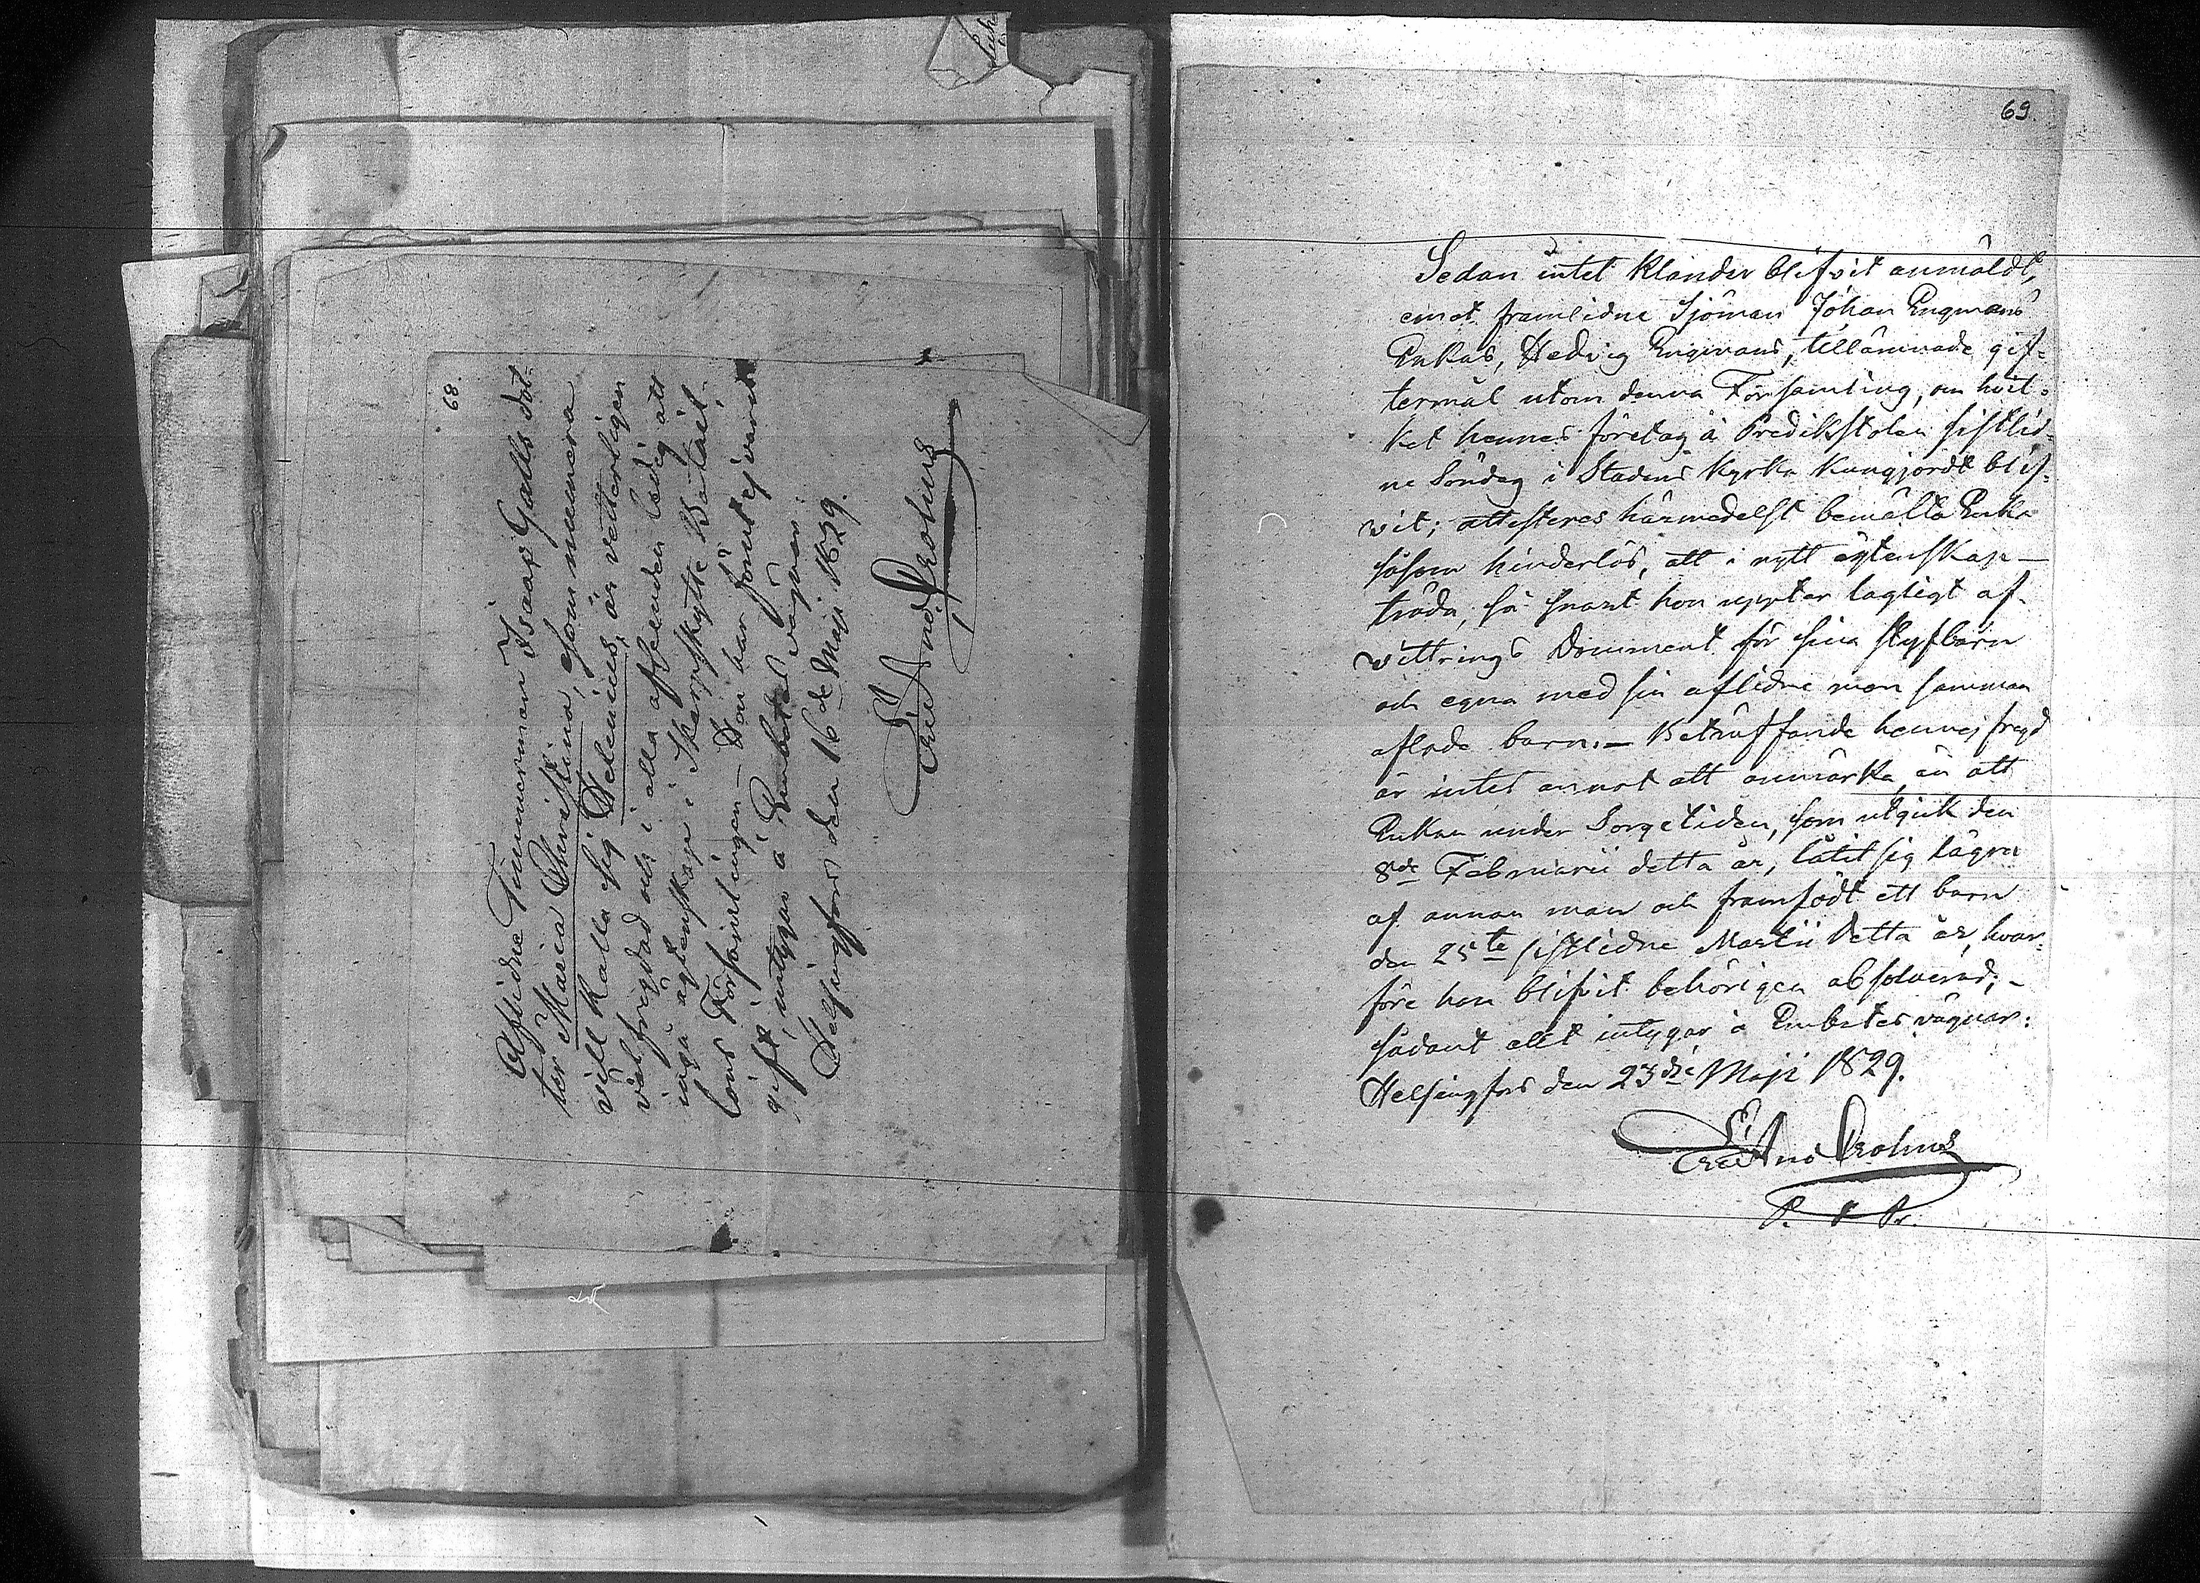 68.
Aflidne Timmerman Isaac Galls dot-
ter Maria Christina, som numera
vill kalla sig Helenius, är vetterligen
välfrägdad och i alla afseenden ledig att
ingå ägtenskap i Skarpskytte Batail-
lons Församlingen – Hon har förut ej varit
gift, intygar à Embetes vägnar:
Helsingfors den 16de Maji 1829.
Eric And. Crolius
69.
Sedan intet klander blifvit anmäldt,
emot framlidne Sjöman Johan Engmans
Enkas, Hedvig Engmans, tillämnade gif-
termål utom denna Församling, om hvil-
ket hennes företag å Predikstolen sistlid-
ne Söndag i Stadens Kyrka kungjordt blif-
vit; attesteres härmedelst bemälta Enka
såsom hinderlös, att i nytt ägtenskap –
träda, så snart hon uppter lagligt af-
vittrings Document för sina styfbarn
och egna med sin aflidne man samman
aflade barn. – Beträffande hennes frägd
är intet annat att anmärka, än att
Enkan under Sorgetiden, som utgick den
8de Februarii detta år, låtit sig lägra
af annan man och framfödt ett barn
den 25te sistledne Martii detta år, hvar-
före hon blifvit behörigen absolverad; –
sådant allt intygar à Embetes vägnar:
Helsingfors den 23die Maji 1829.
Eric And Crolius
P.